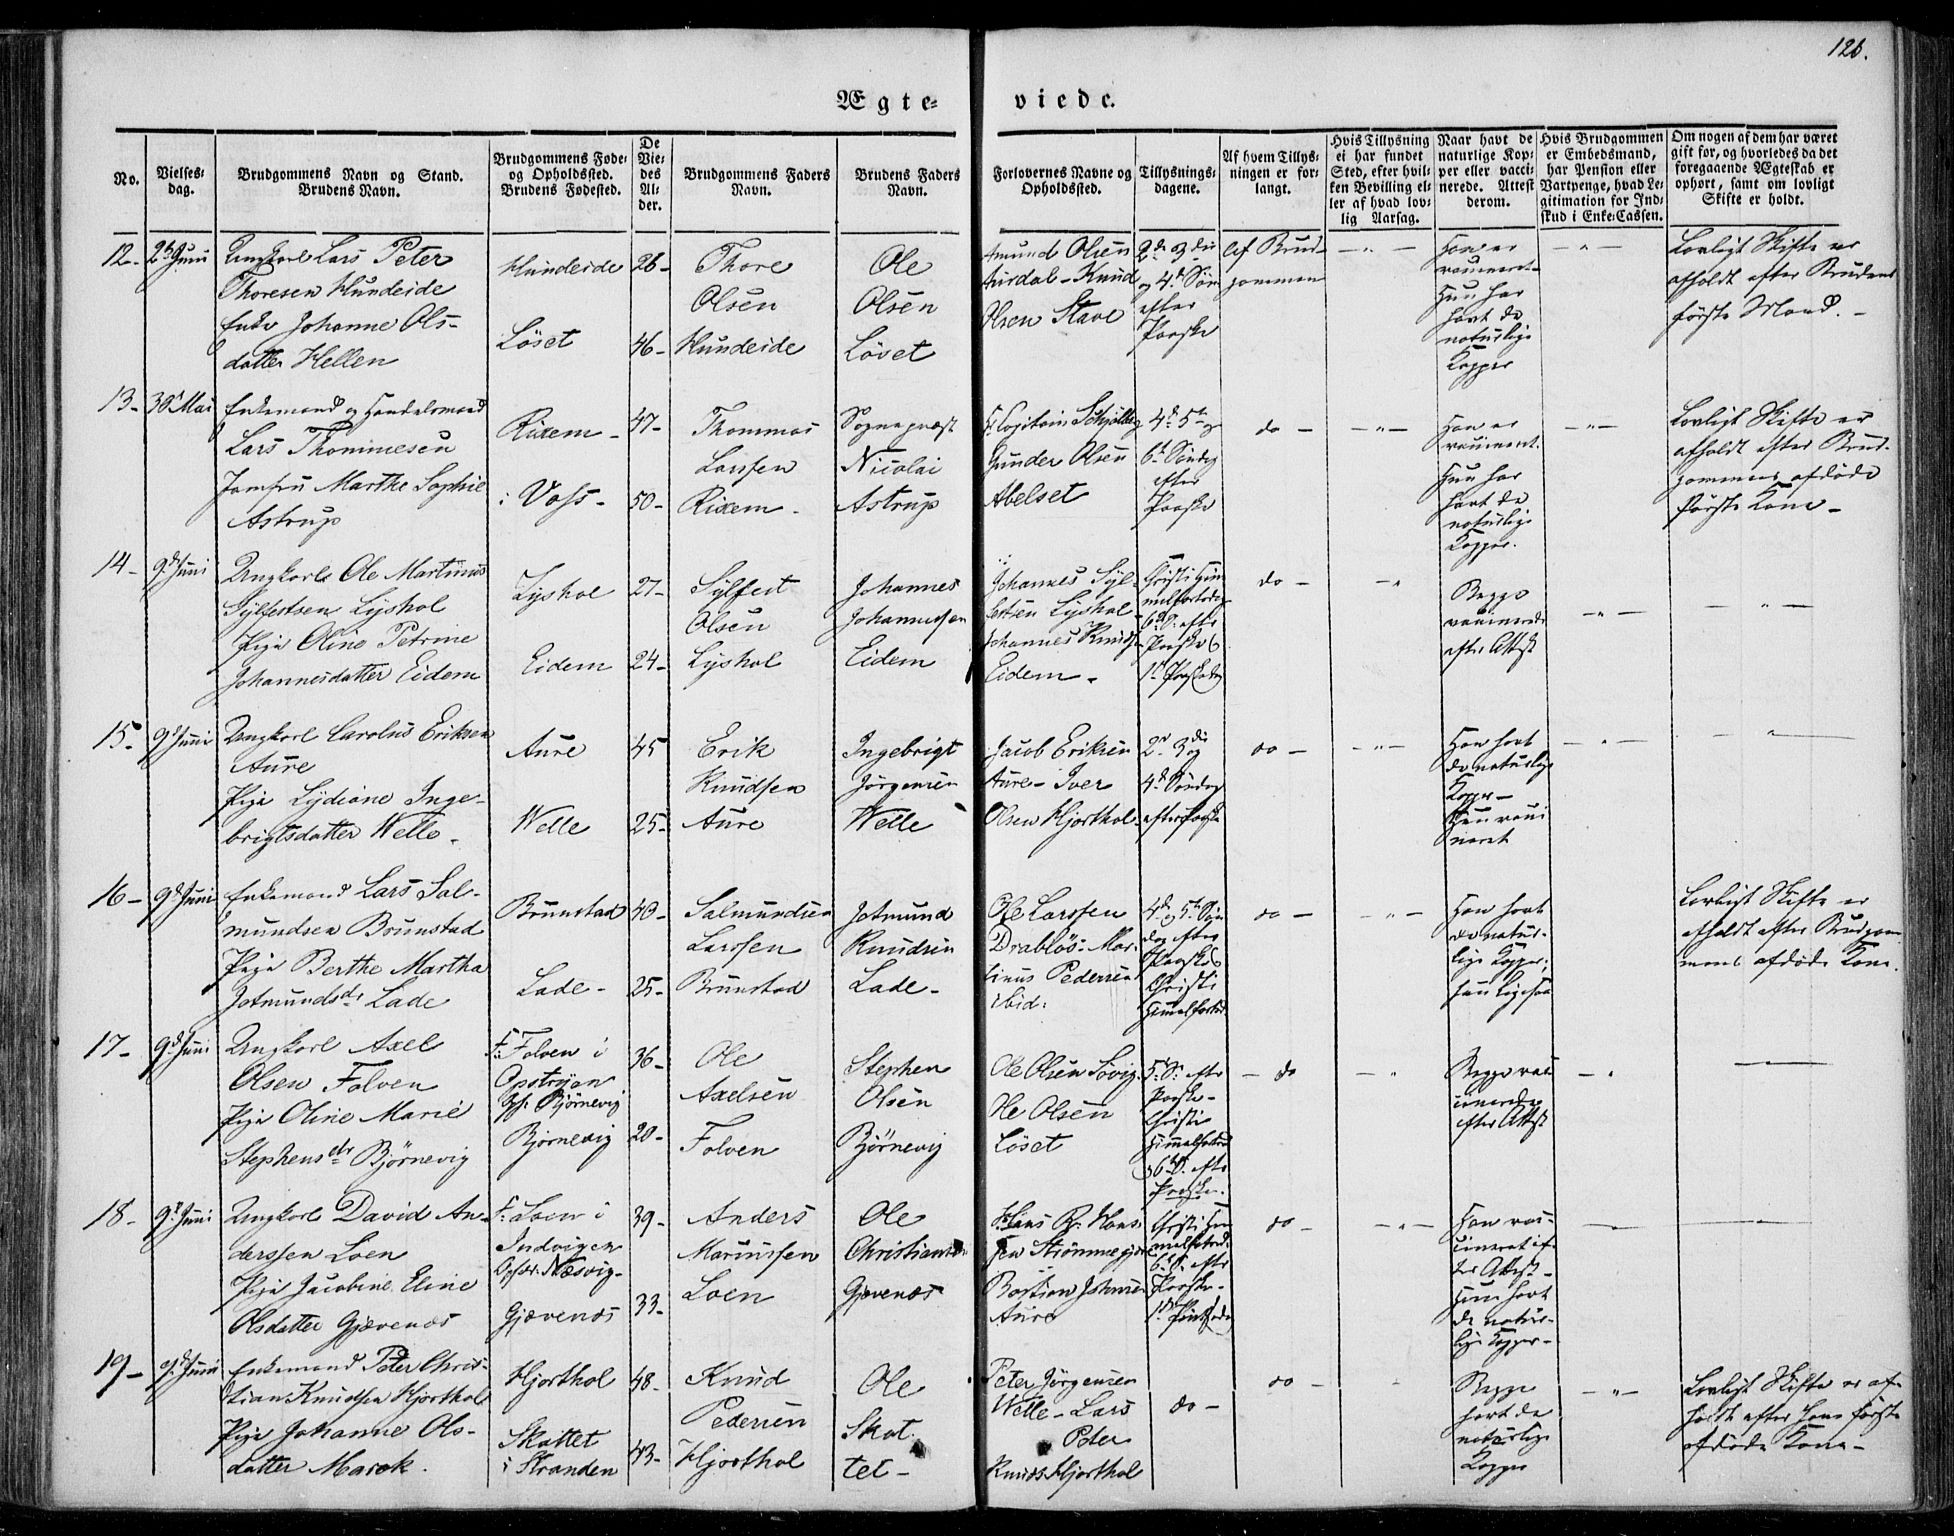 126.
Ægte-
viede.
No.
Vielses-
dag.
Brudgommens Navn og Stand.
Brudens Navn.
Brudgommens Føde-
og Opholdssted.
Brudens Fødested.
De
Vie-
des
Al-
der.
Brudgommens Faders
Navn.
Brudens Faders
Navn.
Forlovernes Navne og
Opholdssted.
Tillysnings-
dagene.
Af hvem Tillys-
ningen er for-
langt.
Hvis Tillysning
ei har fundet
Sted, efter hvil-
ken Bevilling el-
ler af hvad lov-
lig Aarsag.
Naar havt de
naturlige Kop-
per eller vacci-
nerede. Attest
derom.
Hvis Brudgommen
er Embedsmand,
har Pension eller
Vartpenge, hvad Le-
gitimation for Ind-
skud i Enke-Cassen.
Om nogen af dem har været
gift før, og hvorledes da det
foregaaende Ægteskab er
ophørt, samt om lovligt
Skifte er holdt.
12-
Juni
Ungkarl Lars Peter
Thoresen Hundeide
Enke Johanne Ols-
datter Hellen
Hundeide
Löset
26-
46-
Thore
Olsen
Hundeide
Ole
Olsen
Löset
Amund Olsen
Aurdal - Knud
Olsen Stave
2den 3die
og 4de Søn
efter
Paaske
Af Brud-
gommen
Han er
vaccineret-
Hun har
havt de
naturlige
Kopper
Lovligt Skifte er
afholdt efter Brudens
første Mand. -
13-
30te Mai
Enkemand og Handelsmand
Lars Thommesen
Jomfru Marthe Sophie
Astrup
Rixem -
i Voss -
47-
50-
Thommas
Larssen
Rixem -
Sognepræst
Nicolai
Astrup
Gunder Olsen
Abelset
4de 5te og
6te Søndag
efter
Paaske
do -
Han er
vaccineret.
Hun har
havt de
naturlige
Kopper.
Lovligt Skifte er
afholdt efter Brud-
gommens afdøde
første Kone -
14-
9de Juni
Ungkarl Ole Martinus
Sylfestsen Lyshol
Pige Oline Petrine
Johannesdatter Eidem
Lyshol
Eidem
27-
24-
Sylfest
Olsen
Lyshol
Johannes
Johannessen
Eidem
Johannes Syl-
festsen Lyshol
Johannes Knuds-
Eidem -
Christi Him-
melfartsdag
6te S. efter
Paaske &
do -
Begge
vaccinerede
efter Attest
15-
9de Juni
Ungkarl Carolus Eriksen
Aure
Pige Lydiane Inge-
brigtsdatter Welle -
Aure
Welle
45
25-
Erik
Knudsen
Aure
Ingebrigt
Jørgensen
Welle
Jacob Eriksen
Aure - Iver
Olsen Hjorthol -
2den 3die og
4de Søndag
efter Paaske
do -
Han havt
de naturlige
Kopper -
Hun vacci
neret
16-
9de Juni
Enkemand Lars Sal-
mundsen Brunstad
Pige Berthe Martha
Jotmundsdr Lade
Brunstad
Lade -
40-
25-
Salmundsen
Larssen
Brunstad
Jotmund
Knudsen
Lade -
Ole Larssen
Drabløs - Mar-
tinus Pedersen
ibid:
4de og 5te Søn
dag efter
Paaske &
Christi
Himmelfartsd
do -
Han havt
de natur-
lige Kopper,
hun ligesaa
Lovligt Skifte er
afholdt efter Brudgom
mens afdøde Kone.
17-
9de Juni
Ungkarl Axel
Olsen Folven
Pige Oline Marie
Stephensdr Bjørnevig
F: Folven i
Opstryn
Bjørnevig
Bjørnevig
36-
20-
Ole
Axelsen
Folven
Stephen
Olsen
Bjørnevig
Ole Olsen Søvig
Ole Olsen
Løset
5te S. efter
Paaske -
Christi
Himmelfartsd
&6te S. efter
Paaske.
- do
Begge vac
cinerede
efter Attest
18-
9de Juni
Ungkarl David An-
derssen Loen
Pige Jacobine Eline
Olsdatter Gjævenæs
F: Loen i
Indvigen
Næsvig-
Gjævenæs
39-
33-
Anders
Mariussen
Loen
Ole
Christiansen
Gjævenæs
Hans
sen Strømmegjær
Bastian Johnsen
Aure
Christi Him
melfartsd.
6te S. efter
Paaske -
do -
Han vac-
cineret ef-
ter Attest -
Hun havt
de natur-
lige Kopper -
19-
9de Juni
Enkemand Peter Chris-
tian Knudsen Hjorthol
Pige Johanne Ols-
datter Marok.
Hjorthol
Skottet
i Stranden
48-
43-
Knud
Pedersen
Hjorthol
Ole
Skot-
tet -
Peter Jørgensen
Welle - Lars
Peter
Knuds Hjorthol
do -
do -
Begge
havt de
naturlige
Kopper
Lovligt Skifte er af-
holdt efter hans første
afdøde Kone -